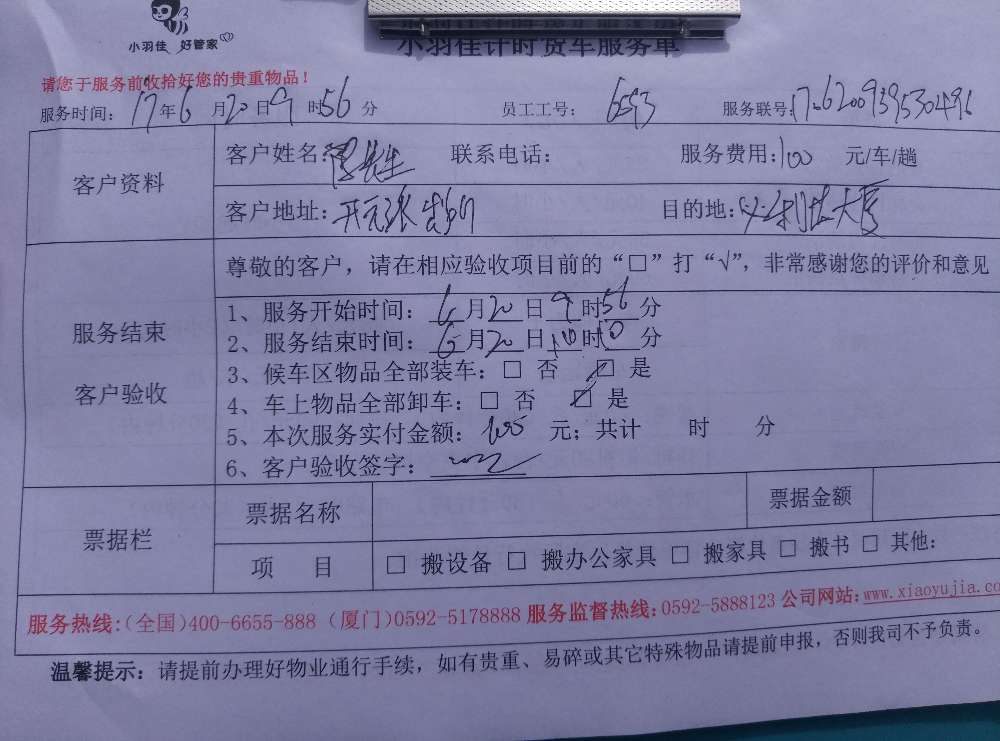 小羽佳 好管家
小羽佳计时货车服务单
请您于服务前收拾好您的贵重物品！
服务时间：17年6月20日9时56分 员工工号：6593 服务联号：
客户资料
客户姓名： 联系电话： 服务费用：100 元/车/趟
客户地址：开元 目的地：大厦
尊敬的客户，请在相应验收项目前的“□”打“√”，非常感谢您的评价和意见
服务结束
客户验收
1、服务开始时间：6月20日9时56分
2、服务结束时间：6月20日10时10分
3、候车区物品全部装车：□ 否 ☑ 是
4、车上物品全部卸车：□ 否 ☑ 是
5、本次服务实付金额：100 元；共计 时 分
6、客户验收签字：
票据栏
票据名称 票据金额
项 目 □ 搬设备 □ 搬办公家具 □ 搬家具 □ 搬书 □ 其他：
服务热线：(全国)400-6655-888 (厦门)0592-5178888 服务监督热线：0592-5888123 公司网站：www.xiaoyujia.co
温馨提示：请提前办理好物业通行手续，如有贵重、易碎或其它特殊物品请提前申报，否则我司不予负责。